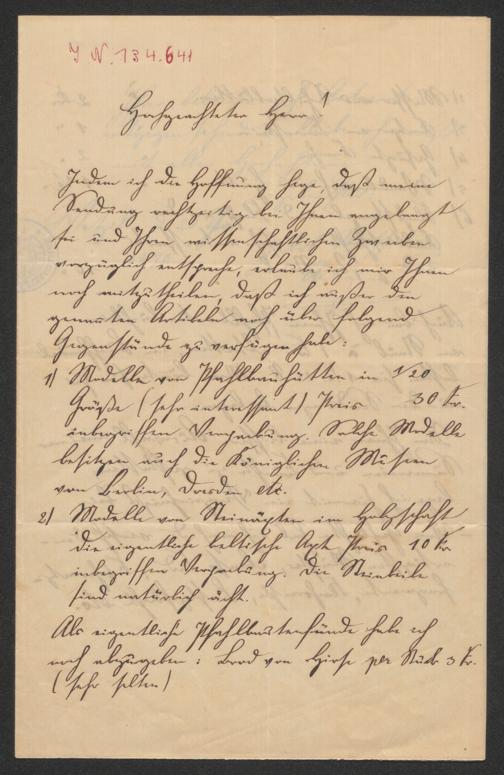 I N. 134.641
Hochgeachteter Herr!
Indem ich die Hoffnung hege, daß meine
Sendung rechtzeitig bei Ihnen angelangt
sei und Ihren wissenschaftlichen Zwecken
vorzüglich entspreche, erlaube ich mir Ihnen
noch mitzutheilen, daß ich außer den
genannten Artikeln noch über folgend
Gegenstände zu verfügen habe:
1) Modelle von Pfahlbauhütten in 1/20
Größe (sehr interessant) Preis 30 Fr.
inbegriffen Verpackung. Solche Modelle
besitzen auch die Königlichen Museen
von Berlin, Dresden etc.
2) Modelle von Steinäxten im Holzschaft
die eigentliche keltische Axt Preis 10 Fr
inbegriffen Verpackung. Die Steinbeile
sind natürlich ächt.
Als eigentliche Pfahlbautenfünde habe ich
noch abzugeben: Brod von Hirse per Stück 3 Fr.
(sehr selten)